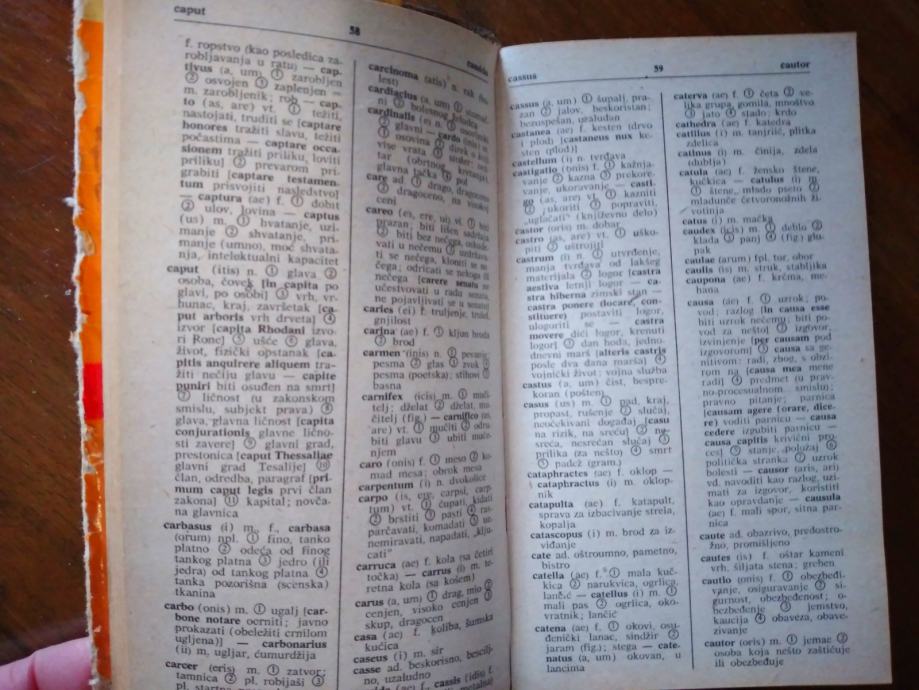 caput
58
f. ropstvo (kao posledica za-
robljavanja u ratu) — cap-
tivus (a, um) ① zarobljen
② osvojen ③ zaplenjen —
m. zarobljenik; rob — cap-
to (as, are) vt. ① težiti,
nastojati, truditi se [captare
honores tražiti slavu, težiti
počastima — captare occa-
sionem tražiti priliku, loviti
priliku] ② prevarom pri-
grabiti [captare testamen-
tum prisvojiti nasledstvo]
— captura (ae) f. ① dobit
② ulov, lovina — captus
(us) m. ① hvatanje, uzi-
manje ② shvatanje, pri-
manje (umno), moć shvata-
nja, intelektualni kapacitet
caput (itis) n. ① glava ②
osoba, čovek [in capita po
glavi, po osobi] ③ vrh, vr-
hunac, kraj, završetak [ca-
put arboris vrh drveta] ④
izvor [capita Rhodani izvo-
ri Rone] ⑤ ušće ⑥ glava,
život, fizički opstanak [ca-
pitis anquirere aliquem tra-
žiti nečiju glavu — capite
puniri biti osuđen na smrt]
⑦ ličnost (u zakonskom
smislu, subjekt prava) ⑧
glava, glavna ličnost [capita
conjurationis glavne ličnos-
ti zavere] ⑨ glavni grad,
prestonica [caput Thessaliae
glavni grad Tesalije] ⑩
član, odredba, paragraf [pri-
mum caput legis prvi član
zakona] ⑪ kapital; novča-
na glavnica
carbasus (i) m., f., carbasa
(orum) npl. ① fino, tanko
platno ② odeća od finog
tankog platna ③ jedro (ili
jedra) od tankog platna ④
tanka pozorišna (scenska)
tkanina
carbo (onis) m. ① ugalj [car-
bone notare ocrniti; javno
prokazati (obeležiti crnilom
ugljena)] — carbonarius
(ii) m. ugljar, ćumurdžija
carcer (eris) m. ① zatvor;
tamnica ② pl. robijaši ③
carcinoma (atis) n. rak
lest)
cardiacus (a, um) ①
ni ② bolesnog
cardinalis (e)
② glavni — cardo (inis) m.
① osovina ②
vise vrata ③
tar
glavna tačka
care ad. ① drago, dragoceno
② dragoceno, na visokoj
ceni
careo (es, ere, ui) vi. ① biti
prazan; biti lišen sadržaja
② biti bez nečega, oskude-
vati u nečemu ③ uzdržava-
ti se nečega, kloniti se ne-
čega; odricati se nekoga
nečega [carere senatu ne
učestvovati u radu senata,
ne pojavljivati se u senatu]
caries (ei) f. truljenje, trulež,
gnjilost
carina (ae) f. ① kljun broda
② brod
carmen (inis) n. ① pevanje,
pesma ② glas ③ zvek ④
pesma (poetska); stihovi ⑤
basna
carnifex (icis) m. ① muči-
telj; dželat ② dželat, mu-
čitelj (fig.) — carnifico (as,
are) vt. ① mučiti ② odru-
biti glavu ③ ubiti muče-
njem
caro (onis) f. ① meso ② ko-
mad mesa; obrok mesa
carpentum (i) n. dvokolice
carpo (is, ere, carpsi, carp-
tum) vt. ① čupati, kidati
② brstiti ③ pasti ④ ras-
parčavati, komadati ⑤ uz-
nemiravati, napadati, „klju-
cati”
carruca (ae) f. kola (sa četiri
točka) — carrus (i) m. te-
retna kola (sa košem)
carus (a, um) ① drag, mio ②
cenjen, visoko cenjen ③
skup, dragocen
casa (ae) f. koliba, šumska
kućica
caseus (i) m. sir
casse ad. beskorisno, bescilj-
no, uzaludno
cassis (idis) f.
cassus
59
cautor
cassus (a, um) ① šupalj, pra-
zan ② jalov, beskoristan;
bezuspešan, uzaludan
castanea (ae) f. kesten (drvo
i plod) [castaneus nux ke-
sten (plod)]
castellum (i) n. tvrđava
castigatio (onis) f. ① kažnja-
vanje ② kazna ③ prekore-
vanje, ukoravanje — casti-
go (as, are) vt. ① kazniti
② ukoriti ③ popraviti,
„uglačati” (književno delo)
castor (oris) m. dabar
castro (as, are) vt. ① uško-
piti ② uštrojiti
castrum (i) n. ① utvrđenje,
manja tvrđava od lakšeg
materijala ② logor [castra
aestiva letnji logor — ca-
stra hiberna zimski stan —
castra ponere (locare, con-
stituere) postaviti logor,
ulogoriti se — castra
movere dići logor, krenuti
logor] ③ dan hoda, jedno-
dnevni marš [alteris castris
posle dva dana marša] ④
vojnički život; vojna služba
castus (a, um) čist, bespre-
koran (pošten)
casus (us) m. ① pad, kraj,
propast, rušenje ② slučaj,
neočekivani događaj [casu
na rizik, na sreću] ③ ne-
sreća, nesrećan slučaj ④
prilika (za nešto) ④ smrt
⑤ padež (gram.)
cataphractes (ae) f. oklop —
cataphractus (i) m. oklop-
nik
catapulta (ae) f. katapult,
sprava za izbacivanje strela,
kopalja
catascopus (i) m. brod za iz-
viđanje
cate ad. oštroumno, pametno,
bistro
catella (ae) f. ① mala kuč-
kica ② narukvica, ogrlica,
lančić — catellus (i) m. ①
mali pas ② ogrlica, oko-
vratnik; lančić
catena (ae) f. ① okovi, osu-
đenički lanac, sindžir ②
jaram (fig.); stega — cate-
natus (a, um) okovan, u
lancima
caterva (ae) f. ① četa ② ve-
lika grupa, gomila, mnoštvo
③ jato ④ stado; krdo
cathedra (ae) f. katedra
catillus (i) m. tanjirić, plitka
zdelica
catinus (i) m. činija, zdela
(dublja)
catula (ae) f. žensko štene,
kučkica — catulus (i) m.
① štene, mlado pseto ②
mladunče četvoronožnih ži-
votinja
catus (i) m. mačka
caudex (icis) m. ① deblo ②
klada ③ panj ④ (fig.) glu-
pak
caulae (arum) fpl. tor, obor
caulis (is) m. struk, stabljika
caupona (ae) f. krčma, me-
hana
causa (ae) f. ① uzrok; po-
vod; razlog [in causa esse
biti uzrok nečemu; biti po-
vod za nešto] ② izgovor,
izvinjenje [per causam pod
izgovorom] ③ causa sa ge-
nitivom: radi, zbog, s obzi-
rom na [causa mea mene
radi] ④ predmet (u prav-
no-procesualnom smislu);
pravno pitanje; parnica
[causam agere (orare, dice-
re) voditi parnicu — causa
cedere izgubiti parnicu —
causa capitis krivični pro-
ces] ⑤ stanje, položaj ⑥
politička stranka ⑦ uzrok
bolesti — causor (aris, ari)
vd. navoditi kao razlog, uzi-
mati za izgovor, koristiti
kao opravdanje — causula
(ae) f. mali spor, sitna par-
nica
caute ad. obazrivo, predostro-
žno, promišljeno
cautes (is) f. oštar kameni
vrh, šiljata stena; greben
cautio (onis) f. ① obezbeđi-
vanje, osiguravanje ② si-
gurnost, obezbeđenost; o-
bezbeđenje ③ jemstvo,
kaucija ④ obaveza, obave-
zivanje
cautor (oris) m. ① jemac ②
osoba koja nešto zaštićuje
ili obezbeđuje